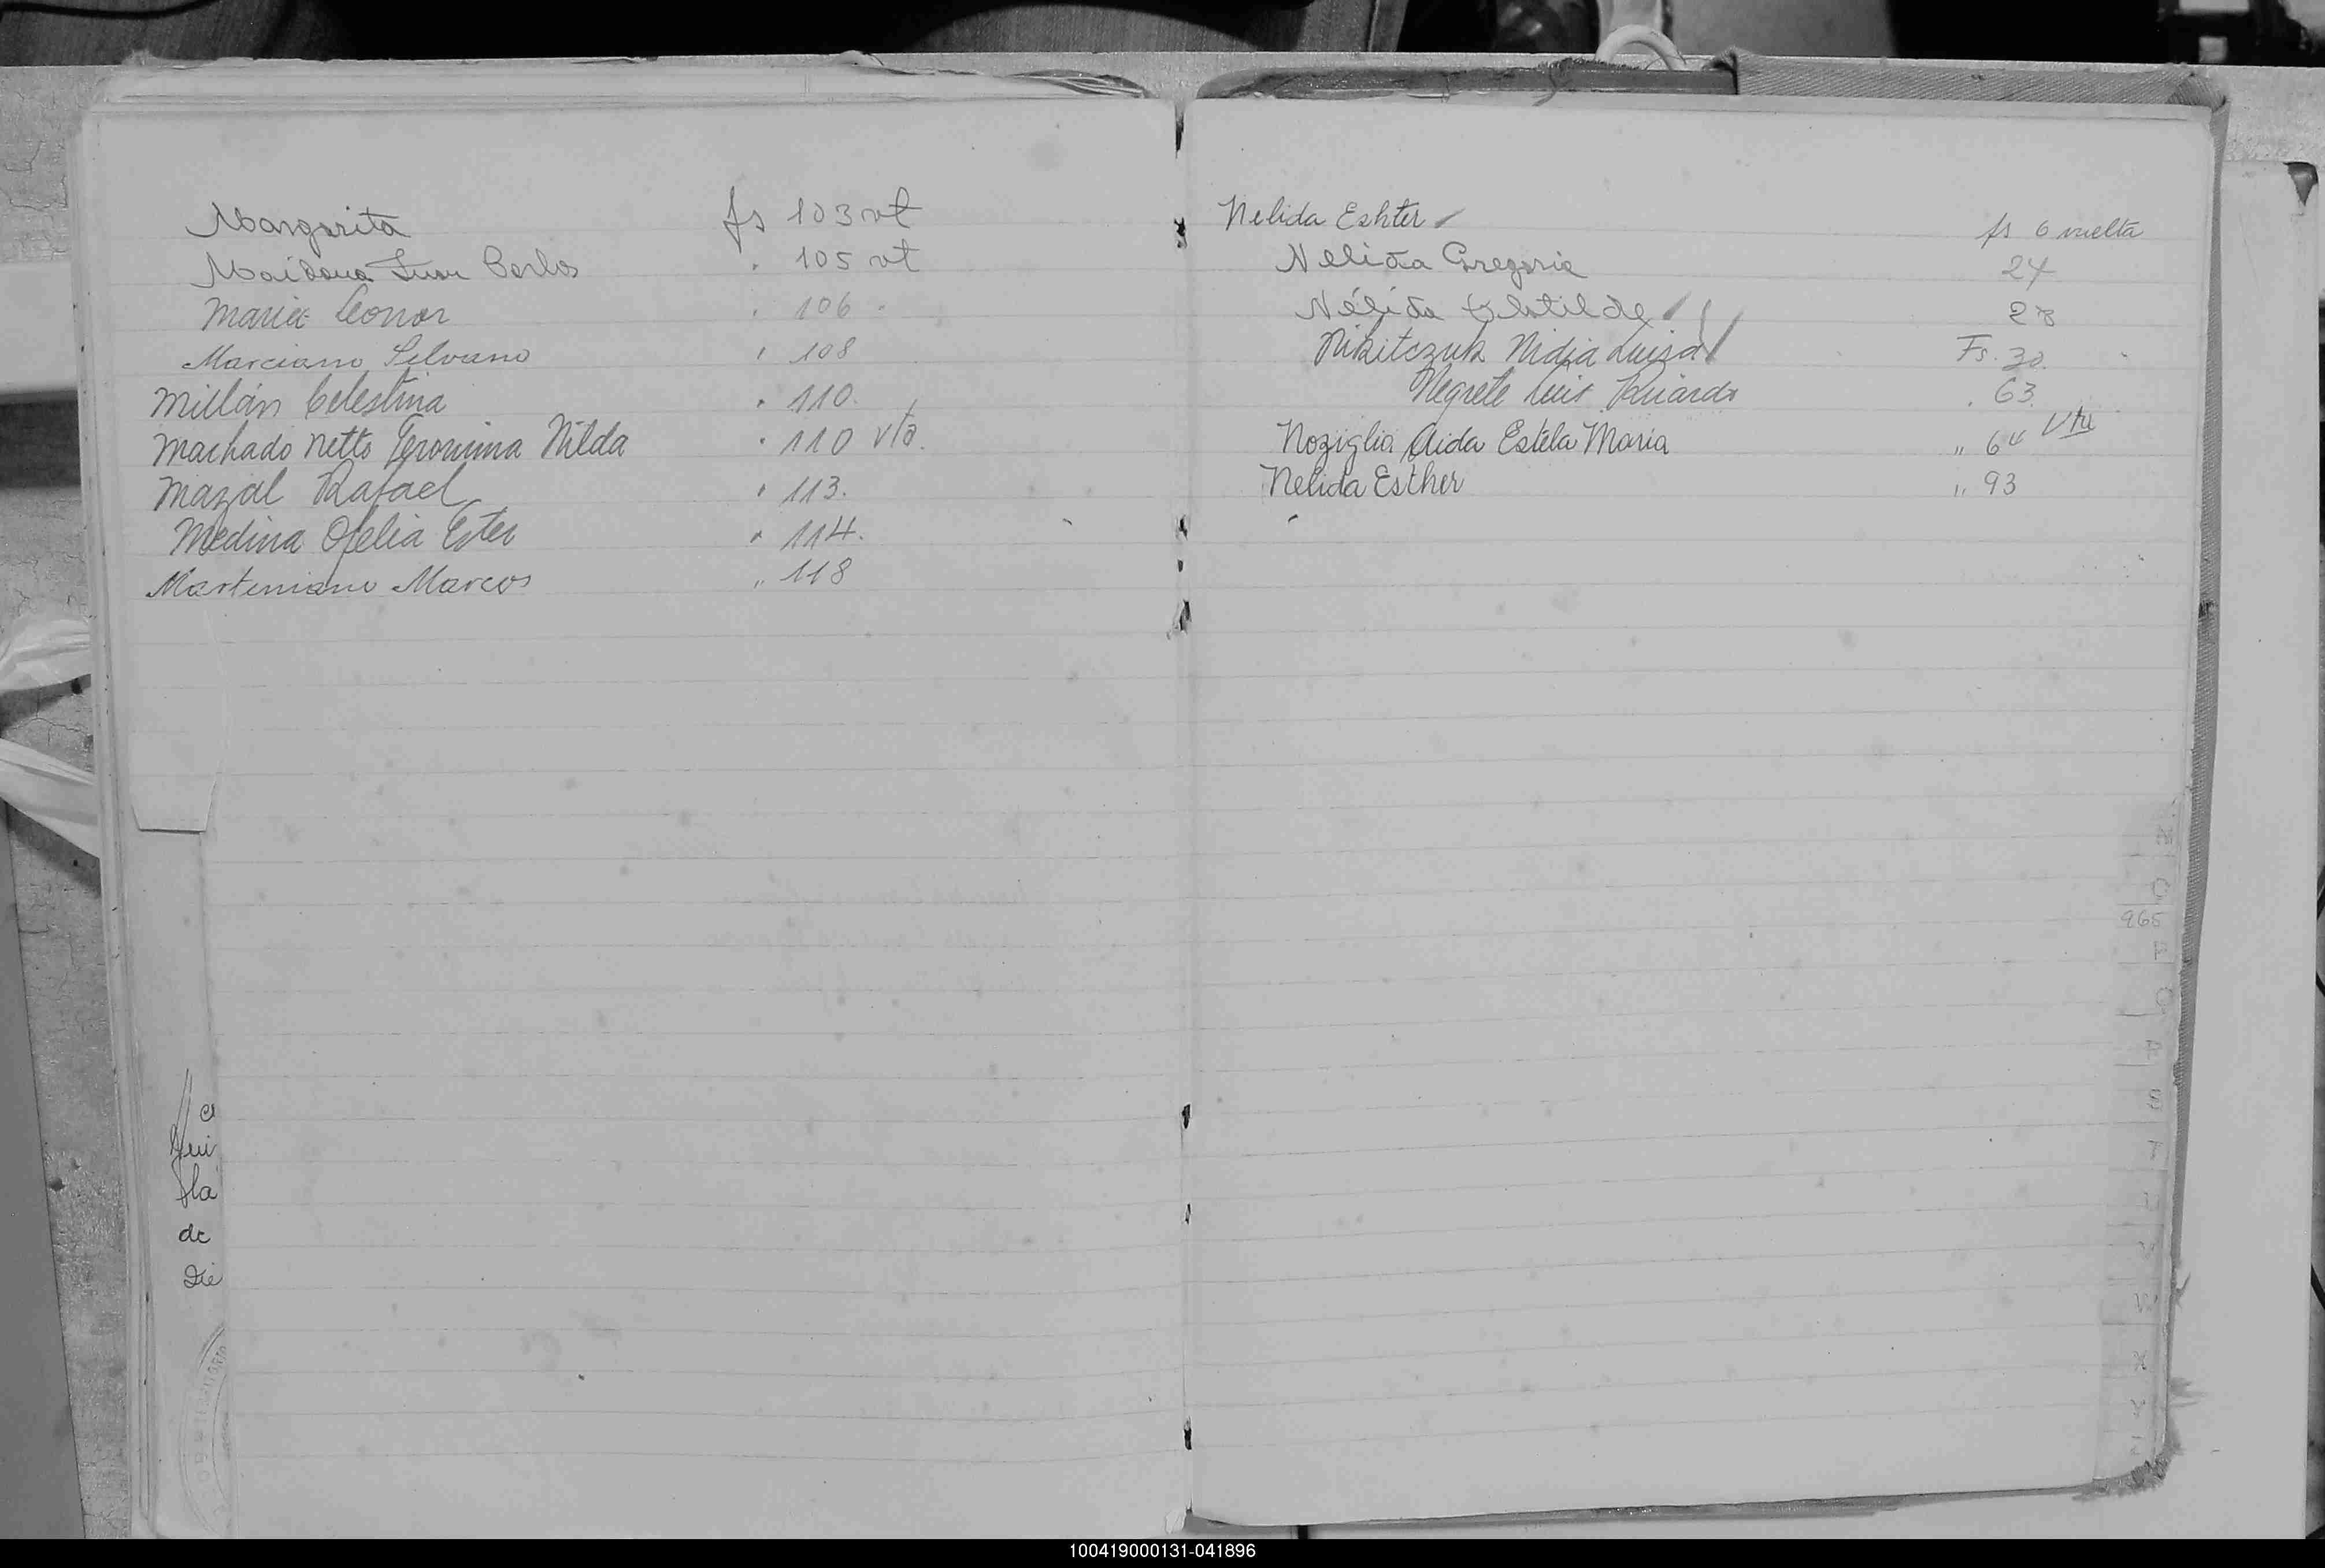 Margarita fs 103 vt
Maidana Juan Carlos " 105 vt
Maria Leonor " 106 "
Marciano Silvano " 108
Millán Celestina " 110.
Machado Netto Geronima Nilda " 110 vta.
Mazal Rafael " 113.
Medina Ofelia Ester " 114.
Marteniano Marcos " 118
a
Qui
fla
de
Die
Nelida Eshter fs 6 vuelta
Nelida Gregoria 24
Nélida Clotilde 28
Nikitczuk Nidia Luisa Fs. 30.
Negrete Luis Ricardo . 63.
Noziglia Aida Estela Maria " 64 Vta
Nelida Esther " 93
965
100419000131-041896